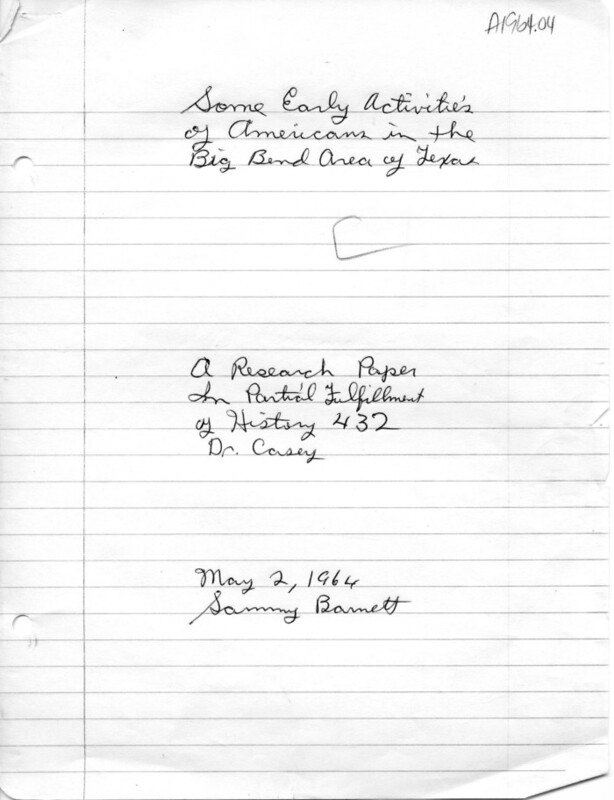 A1964.04
Some Early Activities
of Americans in the
Big Bend Area of Texas
A Research Paper
In Partial Fulfillment
of History 432
Dr. Casey
May 2, 1964
Sammy Barnett